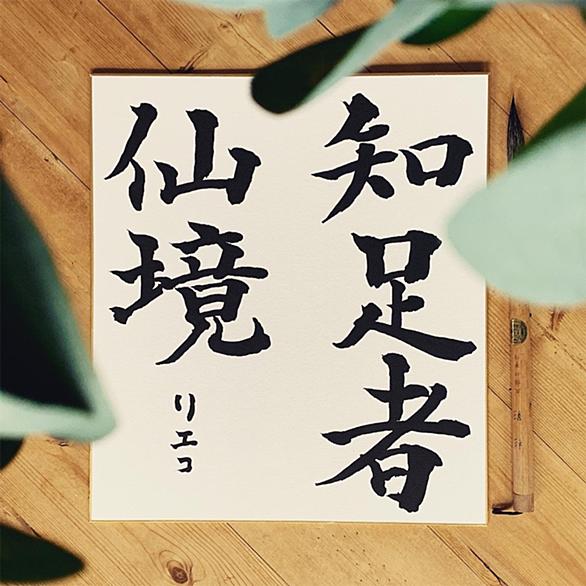 知足者
仙境
リエコ